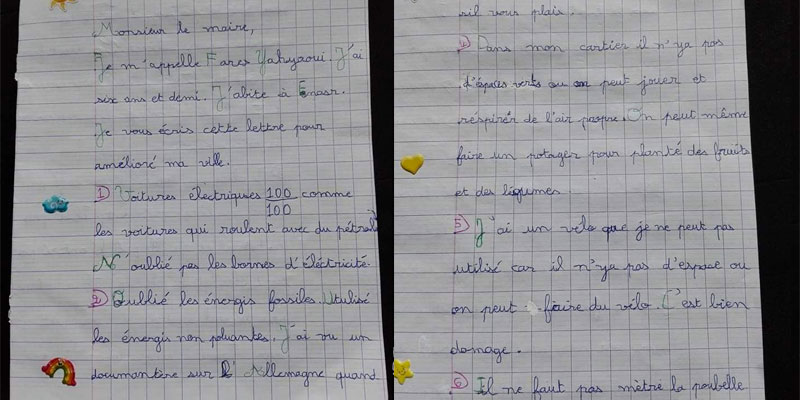 Monsieur le maire,
Je m'appelle Fares Yahyaoui. J'ai
six ans et demi. J'abite à Enasr.
Je vous écris cette lettre pour
amélioré ma ville.
1) Voitures électriques 100/100 comme
les voitures qui roulent avec du pétrole
N'oublié pas les bornes d'éléctricité.
2) Oublié les énergis fossiles. Utulisé
les énergis non poluantes. J'ai vu un
documantère sur l'Allemagne quand
sil vous plais.
4) Dans mon cartier il n'ya pas
d'éspaces verts ou on peut jouer et
respirér de l'air propre. On peut même
faire un potager pour planté des fruits
et des légumes
5) J'ai un vélo que je ne peut pas
utilisé car il n'ya pas d'espace ou
on peut faire du vélo. C'est bien
domage.
6) Il ne faut pas mètre la poubelle